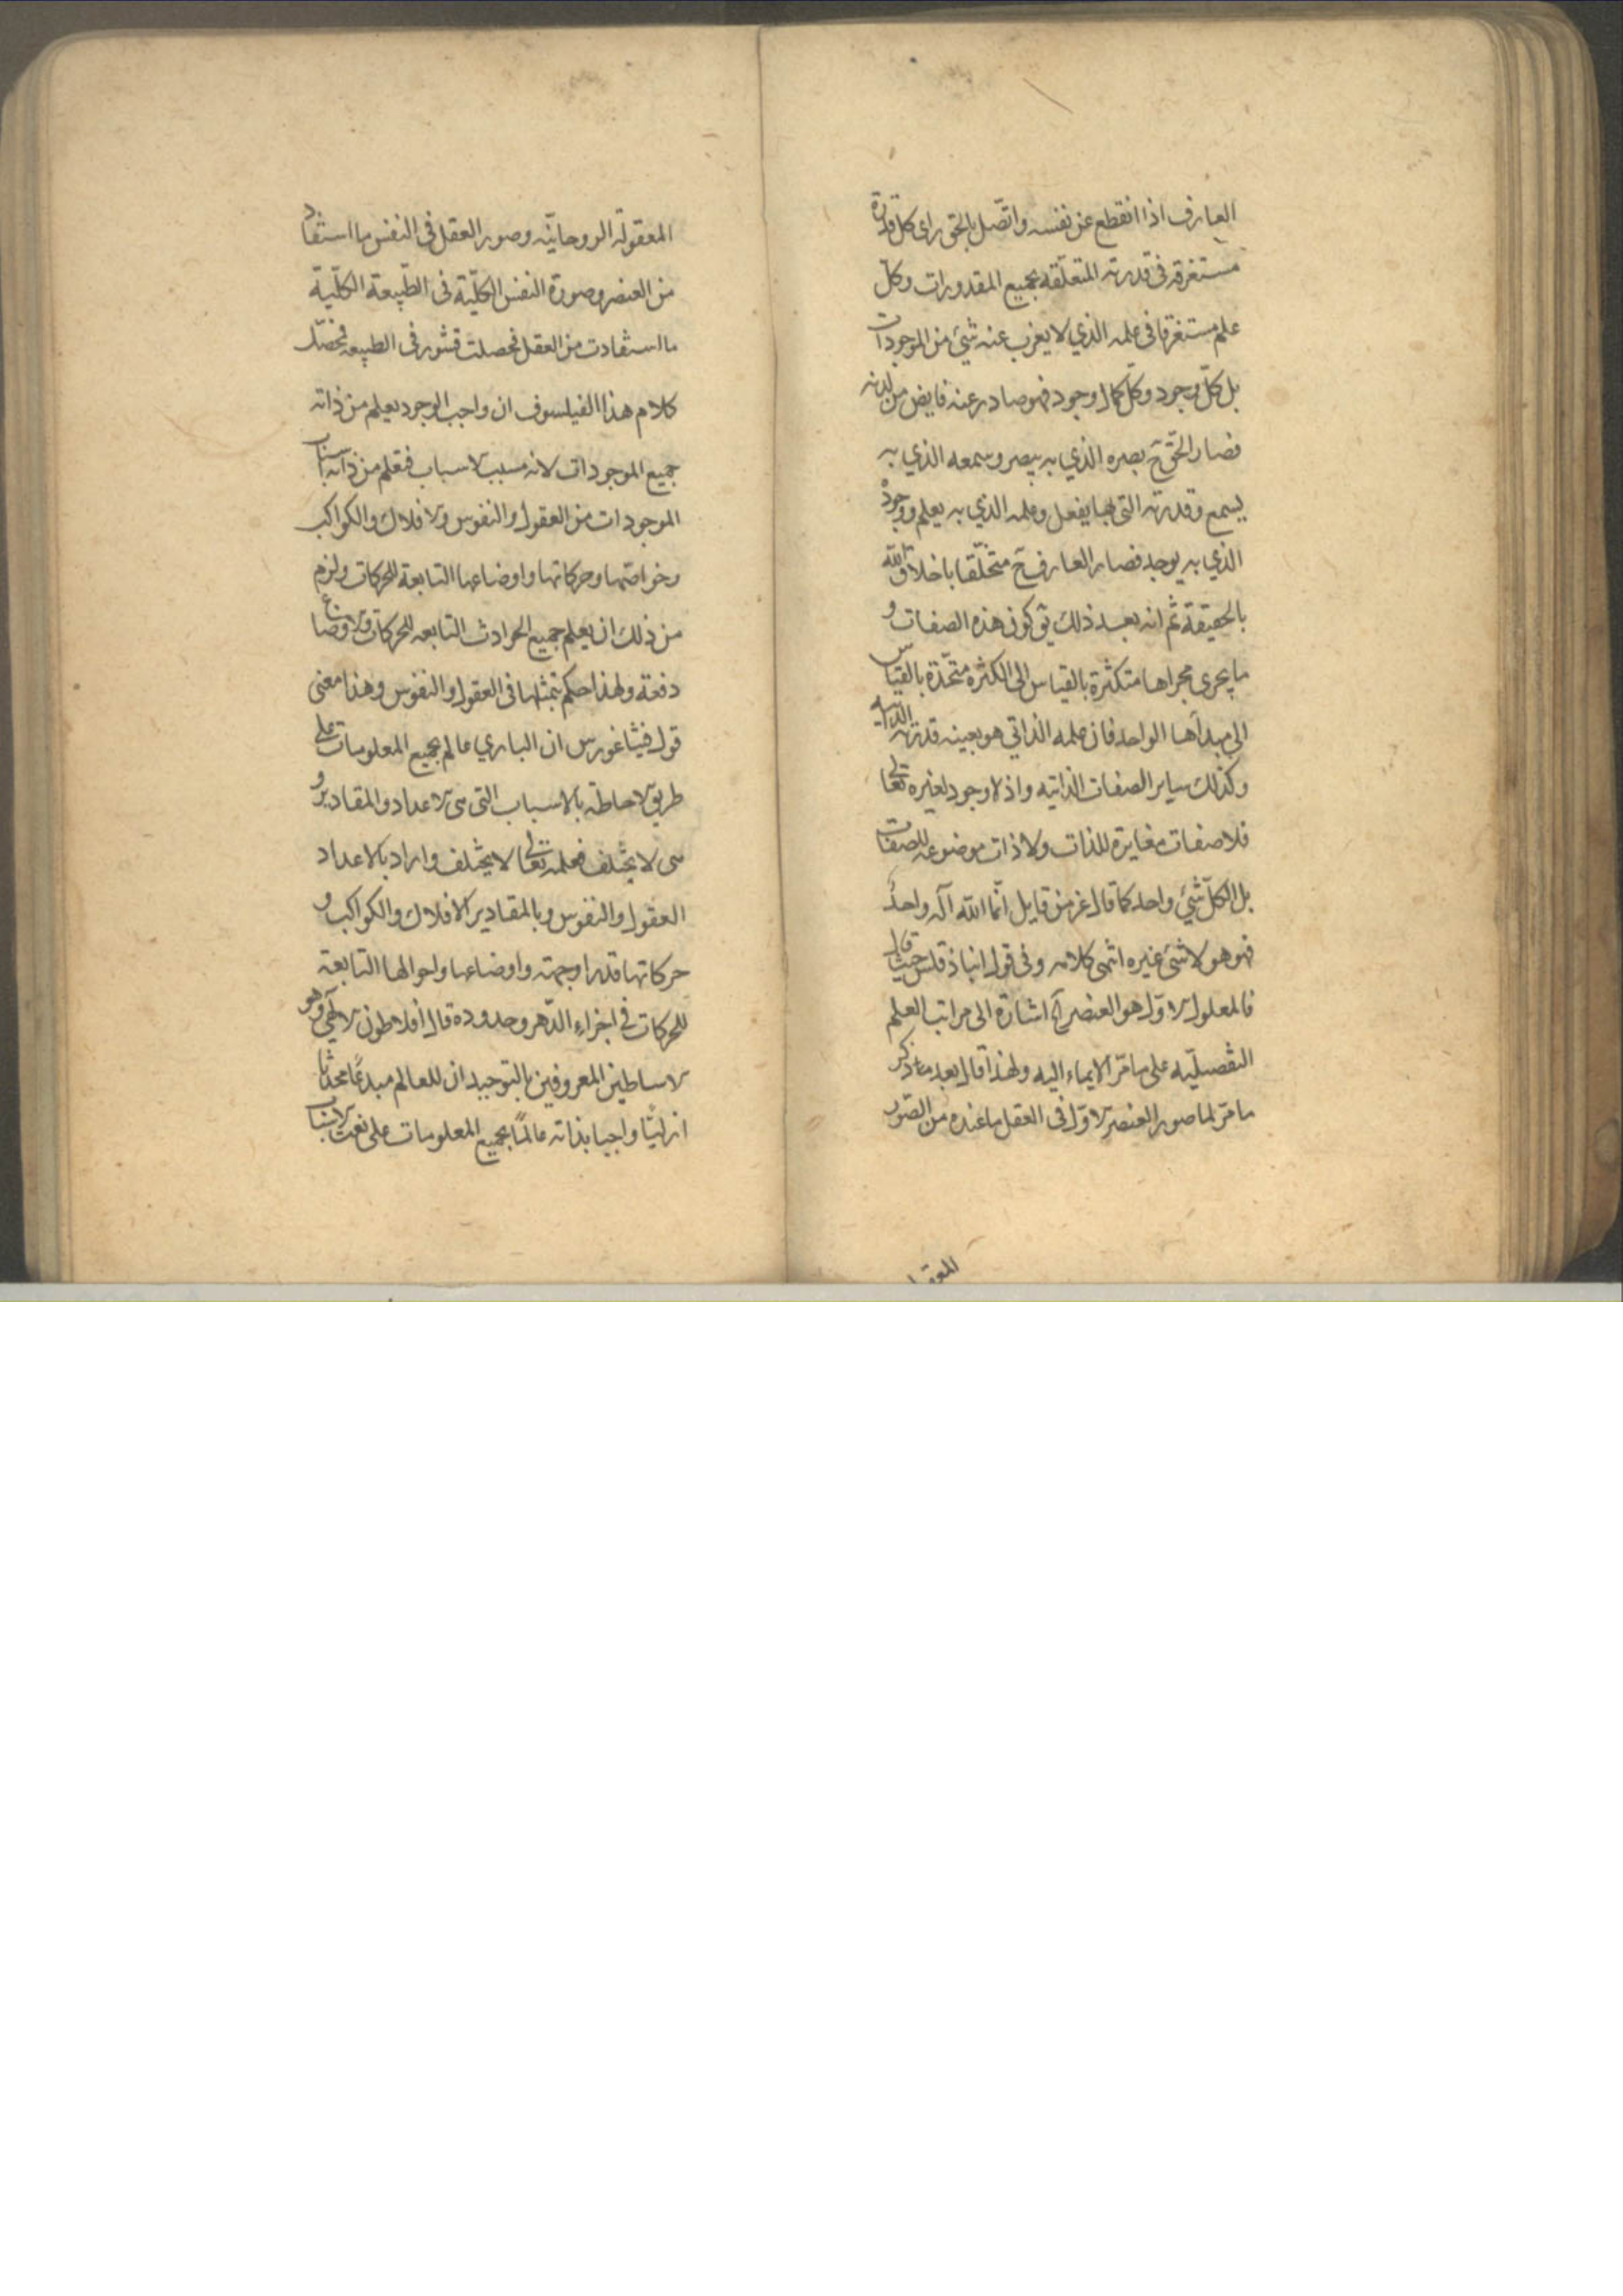 العارف اذا انقطع عن نفسه واتّصل بالحق رای کل قدرة
مستغرقه فی قدرته المتعلّقه بجمیع المقدورات وکلّ
علم مستغرقا فی علمه الذي لا یعزب عنه شئ من الموجودات
بل کلّ وجود وکلّ کمال وجود فهو صادر عنه فایض من لدنه
فصار الحقّ ح بصره الذي به یبصر وسمعه الذي به
یسمع وقدرته التی بها یفعل وعلمه الذي به یعلم ووجوده
الذي به یوجد فصار العارف ح متخلّقا باخلاق الله
بالحقیقة ثم انه بعد ذلك کون هذه الصفات و
ما یجری مجراها متکثرة بالقیاس الی الکثره متّحدة بالقیاس
الی مبدأها الواحد فان علمه الذاتي هو بعینه قدرته الذاتیه
وکذلك سایر الصفات الذاتیه واذ لا وجود لغیره تعالی
فلا صفات مغایرة للذات ولا ذات موضوعه للصفات
بل الکلّ شئ واحد کما قال عز من قایل انّما الله آله واحدٌ
فهو هو لا شئ غیره انتهی کلامه وفی قول انباذقلس حیث قال
فالمعلول الاوّل هو العنصر آه اشارة الی مراتب العلم
التفصیلیّه علی ما مرّ الایماء الیه ولهذا قال بعد ما ذکر
ما مرّ لما صور العنصر الاوّل فی العقل ما عنده من الصّور
المعقو
المعقولة الروحانیّه وصور العقل فی النفس ما استفاد
من العنصر وصورة النفس الکلّیة فی الطّبیعة الکلّیة
ما استفادت من العقل فحصلت قشور فی الطبیعه فحصّل
کلام هذا الفیلسوف ان واجب الوجود یعلم من ذاته
جمیع الموجودات لانه مسبب الاسباب فیعلم من ذاته اسباب
الموجودات من العقول والنفوس والافلاك والکواکب
وخواصّها وحرکاتها واوضاعها التابعة للحرکات ولزم
من ذلك ان یعلم جمیع الحوادث التابعه للحرکات والاوضاع
دفعة ولهذا حکم بتمثلها فی العقول والنفوس وهذا معنی
قول فیثاغورس ان الباري عالم بجمیع المعلومات علی
طریق الاحاطة بالاسباب التی هی الاعداد والمقادیر و
هی لا یختلف فعلمه تعالی لا یختلف واراد بالاعداد
العقول والنفوس وبالمقادیر الافلاك والکواکب و
حرکاتها قدرا وجهة واوضاعها واحوالها التابعة
للحرکات فی اجزاء الدّهر وحدوده قال افلاطون الالهي وهو
الاساطین المعروفین بالتوحید ان للعالم مبدعًا محدثا
ازلیًّا واجبا بذاته عالمًا بجمیع المعلومات علی نعت الاسباب